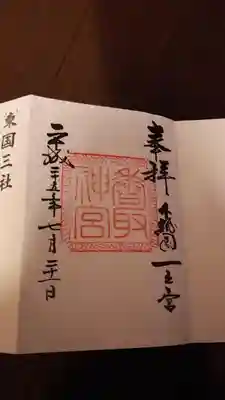 奉拝
下総国
一之宮
香取
神宮
平成二五年七月二十一日
東国三社